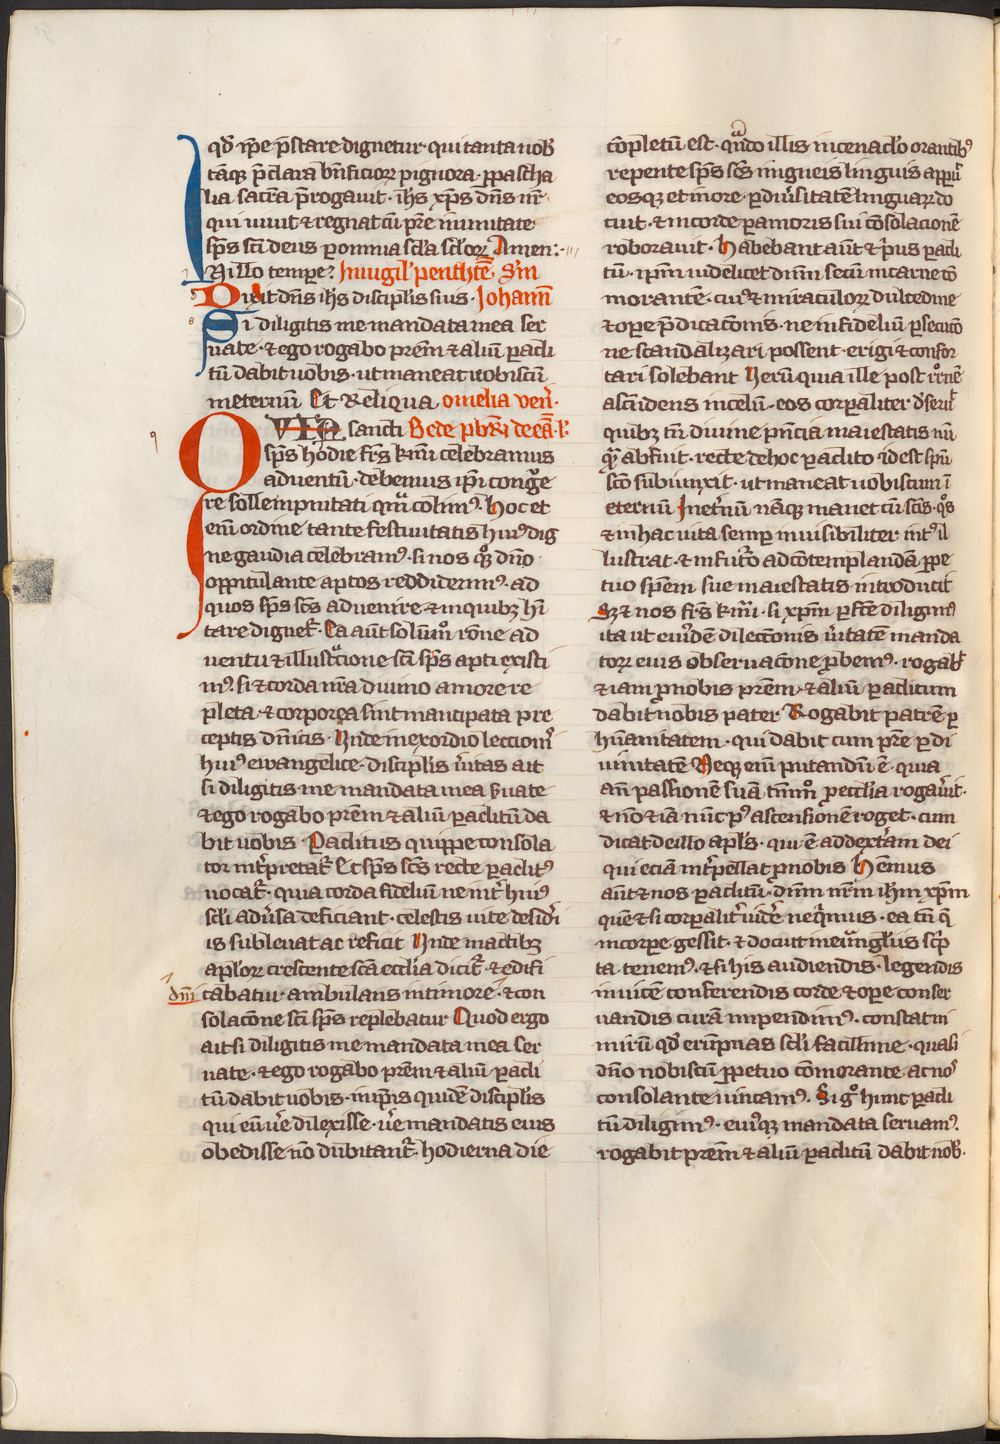 qd̄ ip̄e p̄stare dignetur· qui tanta nob̄
tāq̨ p̄clara bn̄ficioꝝ pignora· ꝑpascha
lia sacrā p̄rogauit· ih̄s xp̄s dn̄s nr̄·
qui uiuit & regnat cū pr̄e in unitate
sp̄s sc̄i deus ꝑ omnia sc̄la sc̄loꝝ Amen:·
N illo tempe? In uigil' penthēc̄ S'm
Dixit dn̄s ih̄s discipl̄is suis· Johann̄
Si diligitis me mandata mea ser
uate· & ego rogabo pr̄em & aliū ꝑacli
tū dabit uobis· ut maneat uobiscū
in eternū Et Reliqua omelia ven̄·
QVIA sancti Bede pb̄ri de eād· l'·
sp̄s hodie fr̄s km̄i celebramus
aduentū· debemus ip̄i cong̾e
re sollempnitati quā colim⁹· hoc et
eni ordine tante festiuitatis hui⁹ dig
ne gaudia celebram⁹· si nos q̊ dn̄o
opp̱itulante aptos reddiderim⁹· ad
quos sp̄s sc̄s aduenire & in quibꝫ hi
tare dignet̄· Ea aūt solūmō rōne ad
uentu & illustc̄ione sc̄i sp̄s apti existi
m⁹· si & corda nr̄a diuino amore re
pleta· & corporea sint mancipata pre
ceptis dn̄icis· Unde in exordio leccioni'
hui⁹ ewangelice· discipl̄is ūitas ait
si diligitis me mandata mea s̄uate
& ego rogabo pr̄em & aliū ꝑaclitū da
bit uobis· Paclitus quippe consola
tor int̄pretat̄· Et sp̄s sc̄s recte ꝑaclit⁹
uocat̄· quia corda fideliū ne int̄ hui⁹
sc̄li adūsa deficiant· celestis uite desid̄i
is subleuat ac reficit Unde in actibꝫ
apl̄oꝝ crescente sc̄a ecc̄lia dicit̄· & edifi
dn̄i cabatur· ambulans in timore· & con
solac̄one sc̄i sp̄s replebatur Quod ergo
ait si diligitis me mandata mea ser
uate· & ego rogabo pr̄em & aliū ꝑacli
tū dabit uobis· in ip̄is quidē discipl̄is
qui eū uē dilexisse· uē mandatis eius
obedisse nō dubitant̄· hodierna die
cōpletū est· qn̄do illis in cenac̄lo orantib⁹
repente sp̄s sc̄s in igneis linguis app̱uit
eosq̨ et in ore· ꝑ dūsitatē linguarū do
cuit· & in corde ꝑ amoris sui cōsolacionē
roborauit· habebant aūt & p̄us ꝑacli
tū· ip̄m uidelicet dn̄m secū in carne cō
morantē· cui⁹ & miraculoꝝ dulcedine
& ope p̄dicacōnis· ne infideliū ꝑsecuco
ne scandalizari possent· erigi & confor
tari solebant Uerū quia ille post r̄onē
ascendens in celū· eos corꝑaliter deseruit
quibꝫ tn̄ diuine pn̄cia maiestatis nū
q̄ abfuit· recte de hoc ꝑaclito id est sp̄u
sc̄o subiunxit· ut maneat uobiscum ī
eternū Inet̄nū nāq̨ manet cū sc̄is· q̊s
& in hac uita semꝑ inuisibiliter int⁹ il
lustrat· & in fut̄o ad cōtemplandā ꝑpe
tuo spēm sue maiestatis introducit
Sꝫ & nos fr̄s km̄i· si xp̄m ꝑfcē diligim⁹
ita ut eiusdē dilecc̄onis ūitatē manda
toꝝ eius obseruac̄one ꝓbem⁹· rogabit
etiam ꝓ nobis pr̄em· & aliū ꝑaclitum
dabit nobis pater Rogabit patrē ꝑ
hūanitatem· qui dabit cum pr̄e ꝑ di
uinitatē Neq̨ eni putandū ē· quia
an̄ passionē suā tn̄m̊ ꝓ ecc̄lia rogauit·
& nō & iā nūc p⁹ ascensionē roget· cum
dicat de illo apl̄s· qui ē ad dextām dei
qui eciā int̄pellat ꝓ nobis hēmus
aūt & nos ꝑaclitū· dn̄m nr̄m ih̄m xp̄m
quē & si corꝑalit̄ uid̄e neq̄mus· ea tn̄ q̄
in corꝑe gessit· & docuit in eu̅ngliis sc̄p
ta tenem⁹· & si his audiendis· legendis
inuicē conferendis corde & ope conser
uandis curā impendim⁹· constat ni
mirū qd̄ erūpnas sc̄li facillime· quasi
dn̄o nobiscū ꝑpetuo cōmorante ac no⁹
consolante uincam⁹. Sig̊ hunc ꝑacli
tū diligim⁹· eui⁹q̨ mandata seruam⁹·
rogabit pr̄em & aliū ꝑaclitū dabit nob̄·